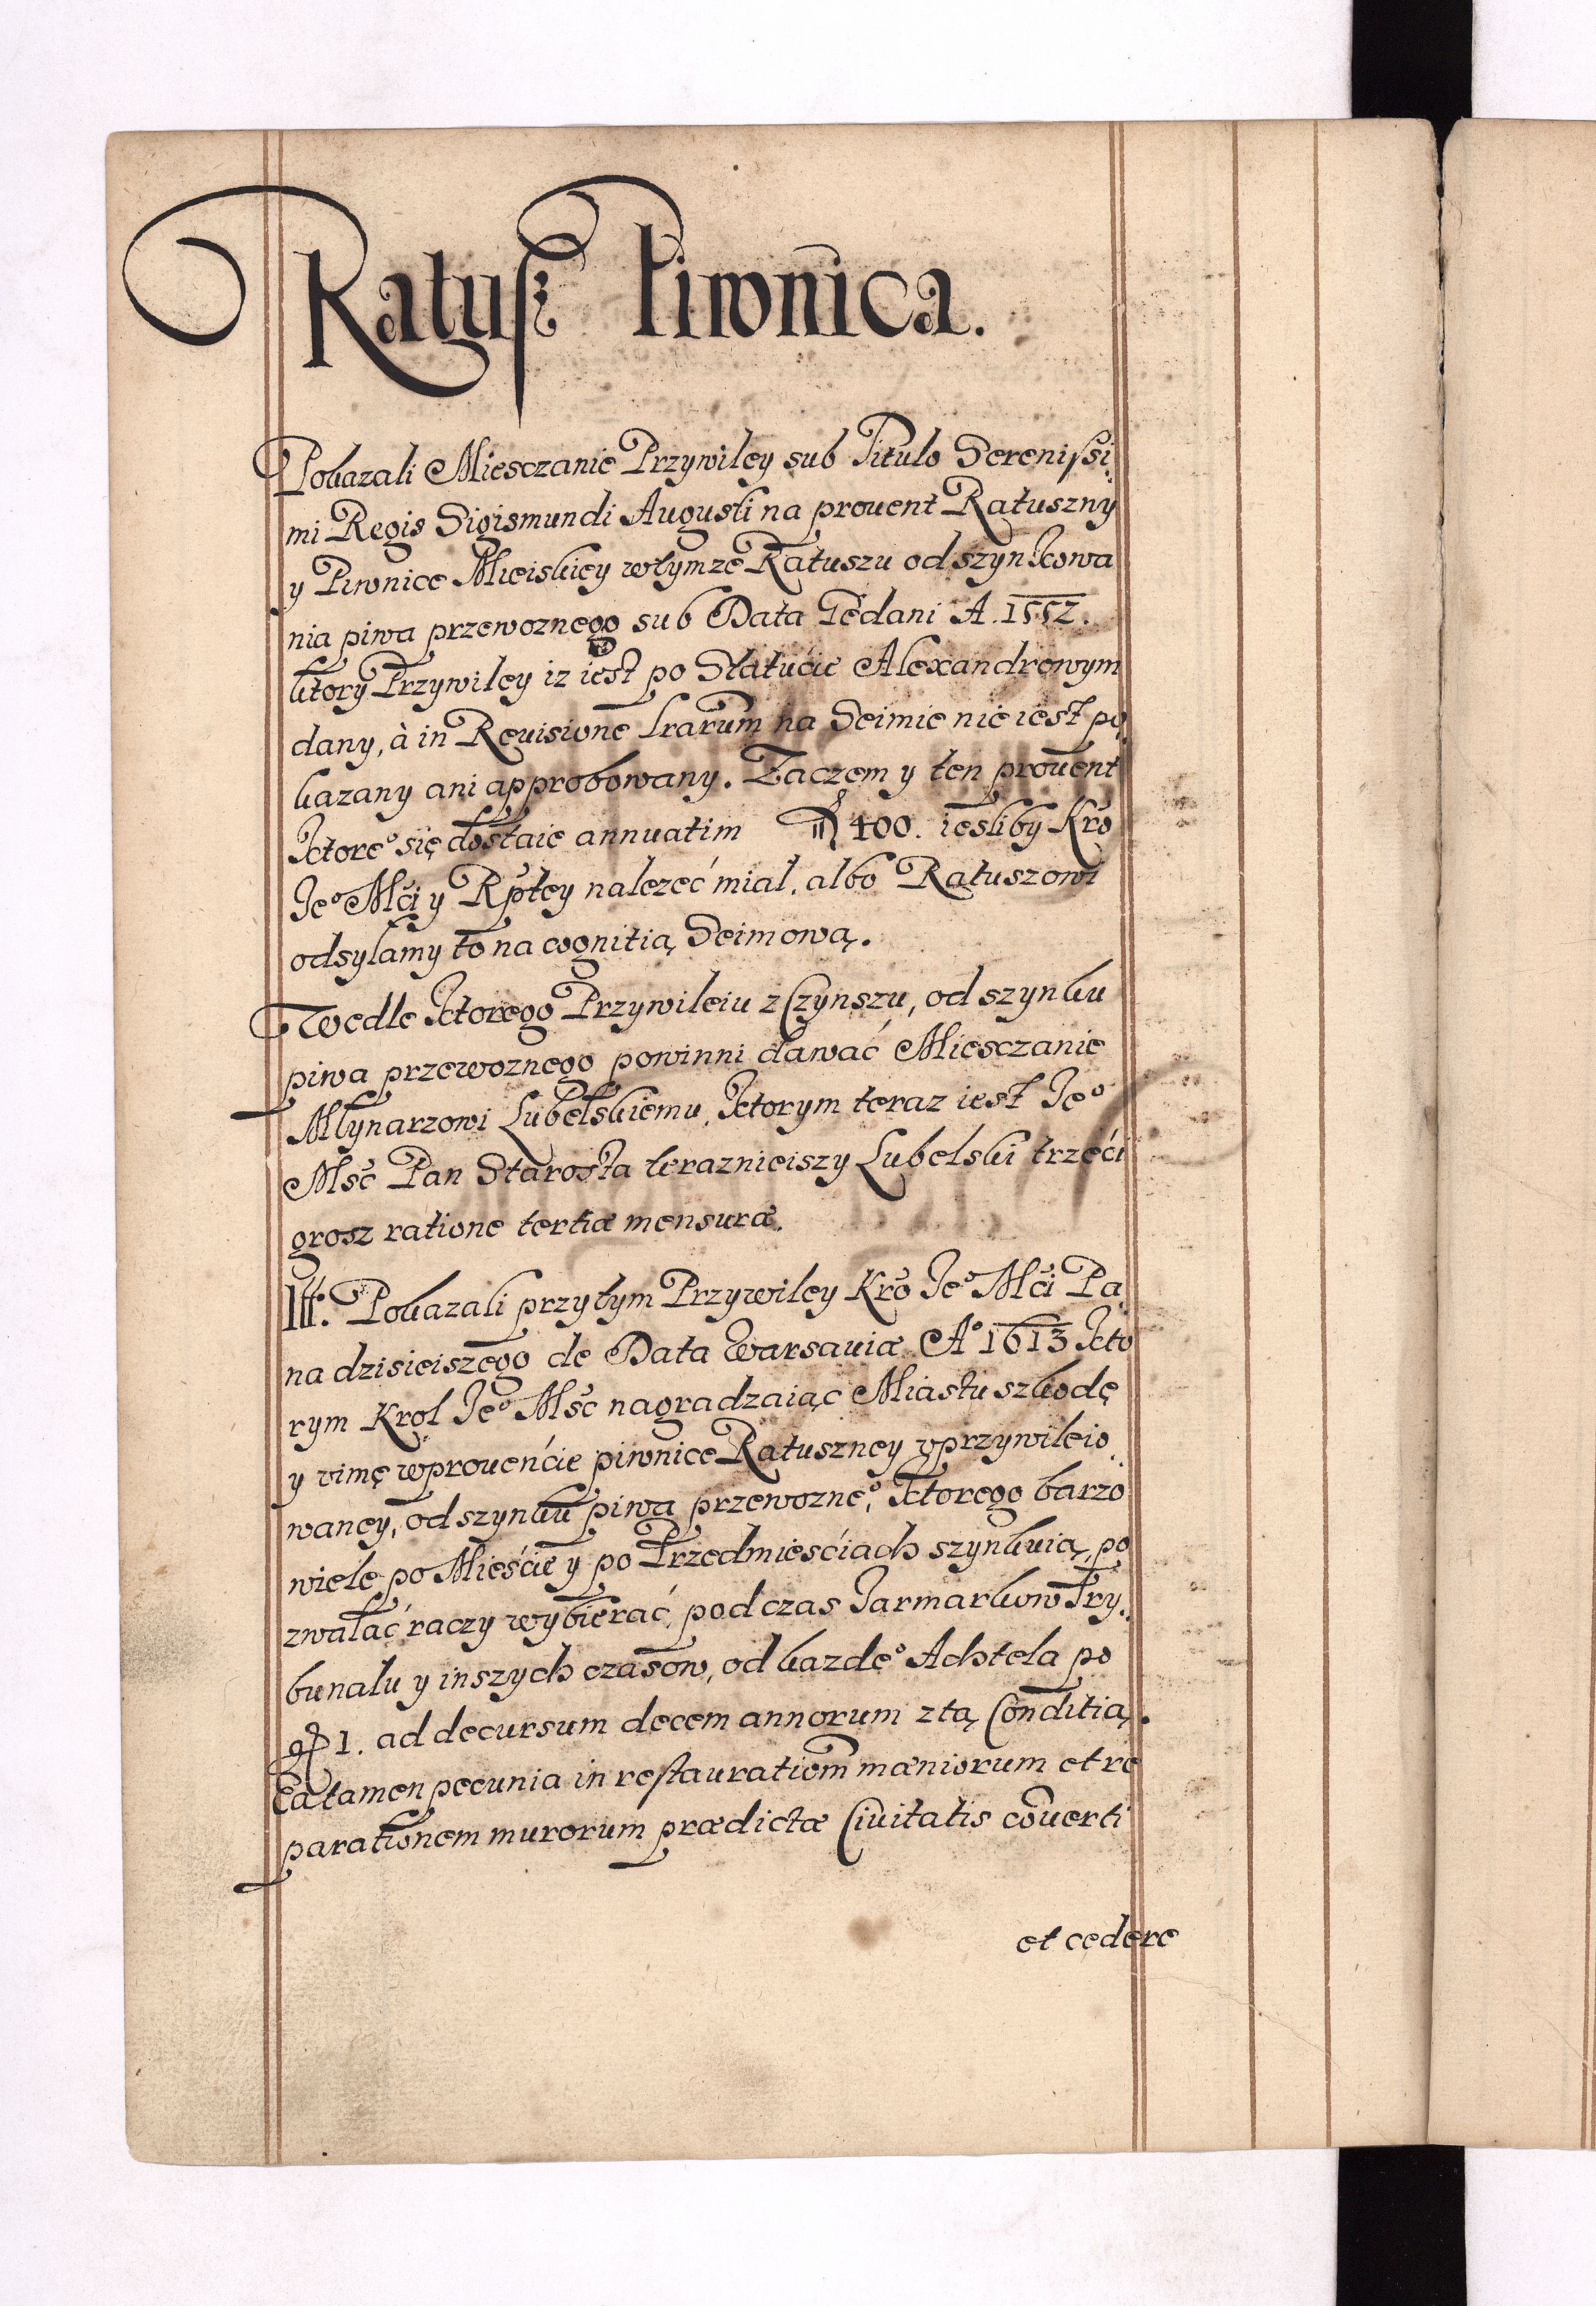 Ratusz Piwnica.
Pokazali Miesczanie Przywiley sub Titulo Serenissi
mi Regis Sigismundi Augusti na prouent Ratuszny
y Piwnice Mieiskiey wtymze Ratuszu od szynkowa
nia piwa przewoznego sub Data Gedani A. 1552.
ktory Przywiley iz iest po Statucie Alexandrowym
dany, à in Reuisione Lrarum na Seimie nie iest po
kazany ani approbowany. Zaczem y ten prouent
ktoreº się dostaie annuatim 400. iesliby Kro
Jeº Mći y Rptey nalezeć mial, albo Ratuszowi
odsylamy to na cognitią Seimową.
Wedle ktorego Przywileiu z Czynszu, od szynku
piwa przewoznego powinni dawać Miesczanie
Mlynarzowi Lubelskiemu, ktorym teraz iest Jeº
Mść Pan Starosta teraznieiszy Lubelski trzeći
grosz ratione tertiæ mensuræ.
Itt: Pokazali przytym Przywiley Kro Jeº Mći Pa
na dzisieiszego de Data Warsauiæ Aº 1613 kto
rym Krol Jeº Mść nagradzaiąc Miastu szkodę
y vimę wprouenćie piwnice Ratuszney vprzywileio
waney, od szynku piwa przewozneº, ktorego barzo
wiele po Mieśćie y po Przedmiesćiach szynkuią, po
zwalać raczy wybierać, podczas Jarmarkow Try
bunalu y inszych czasow, od kazdeº Achtela po
gr 1. ad decursum decem annorum z tą Conditią.
Ea tamen pecunia in restaurationem mæniorum et re
parationem murorum prædictæ Ciuitatis conuerti
et cedere